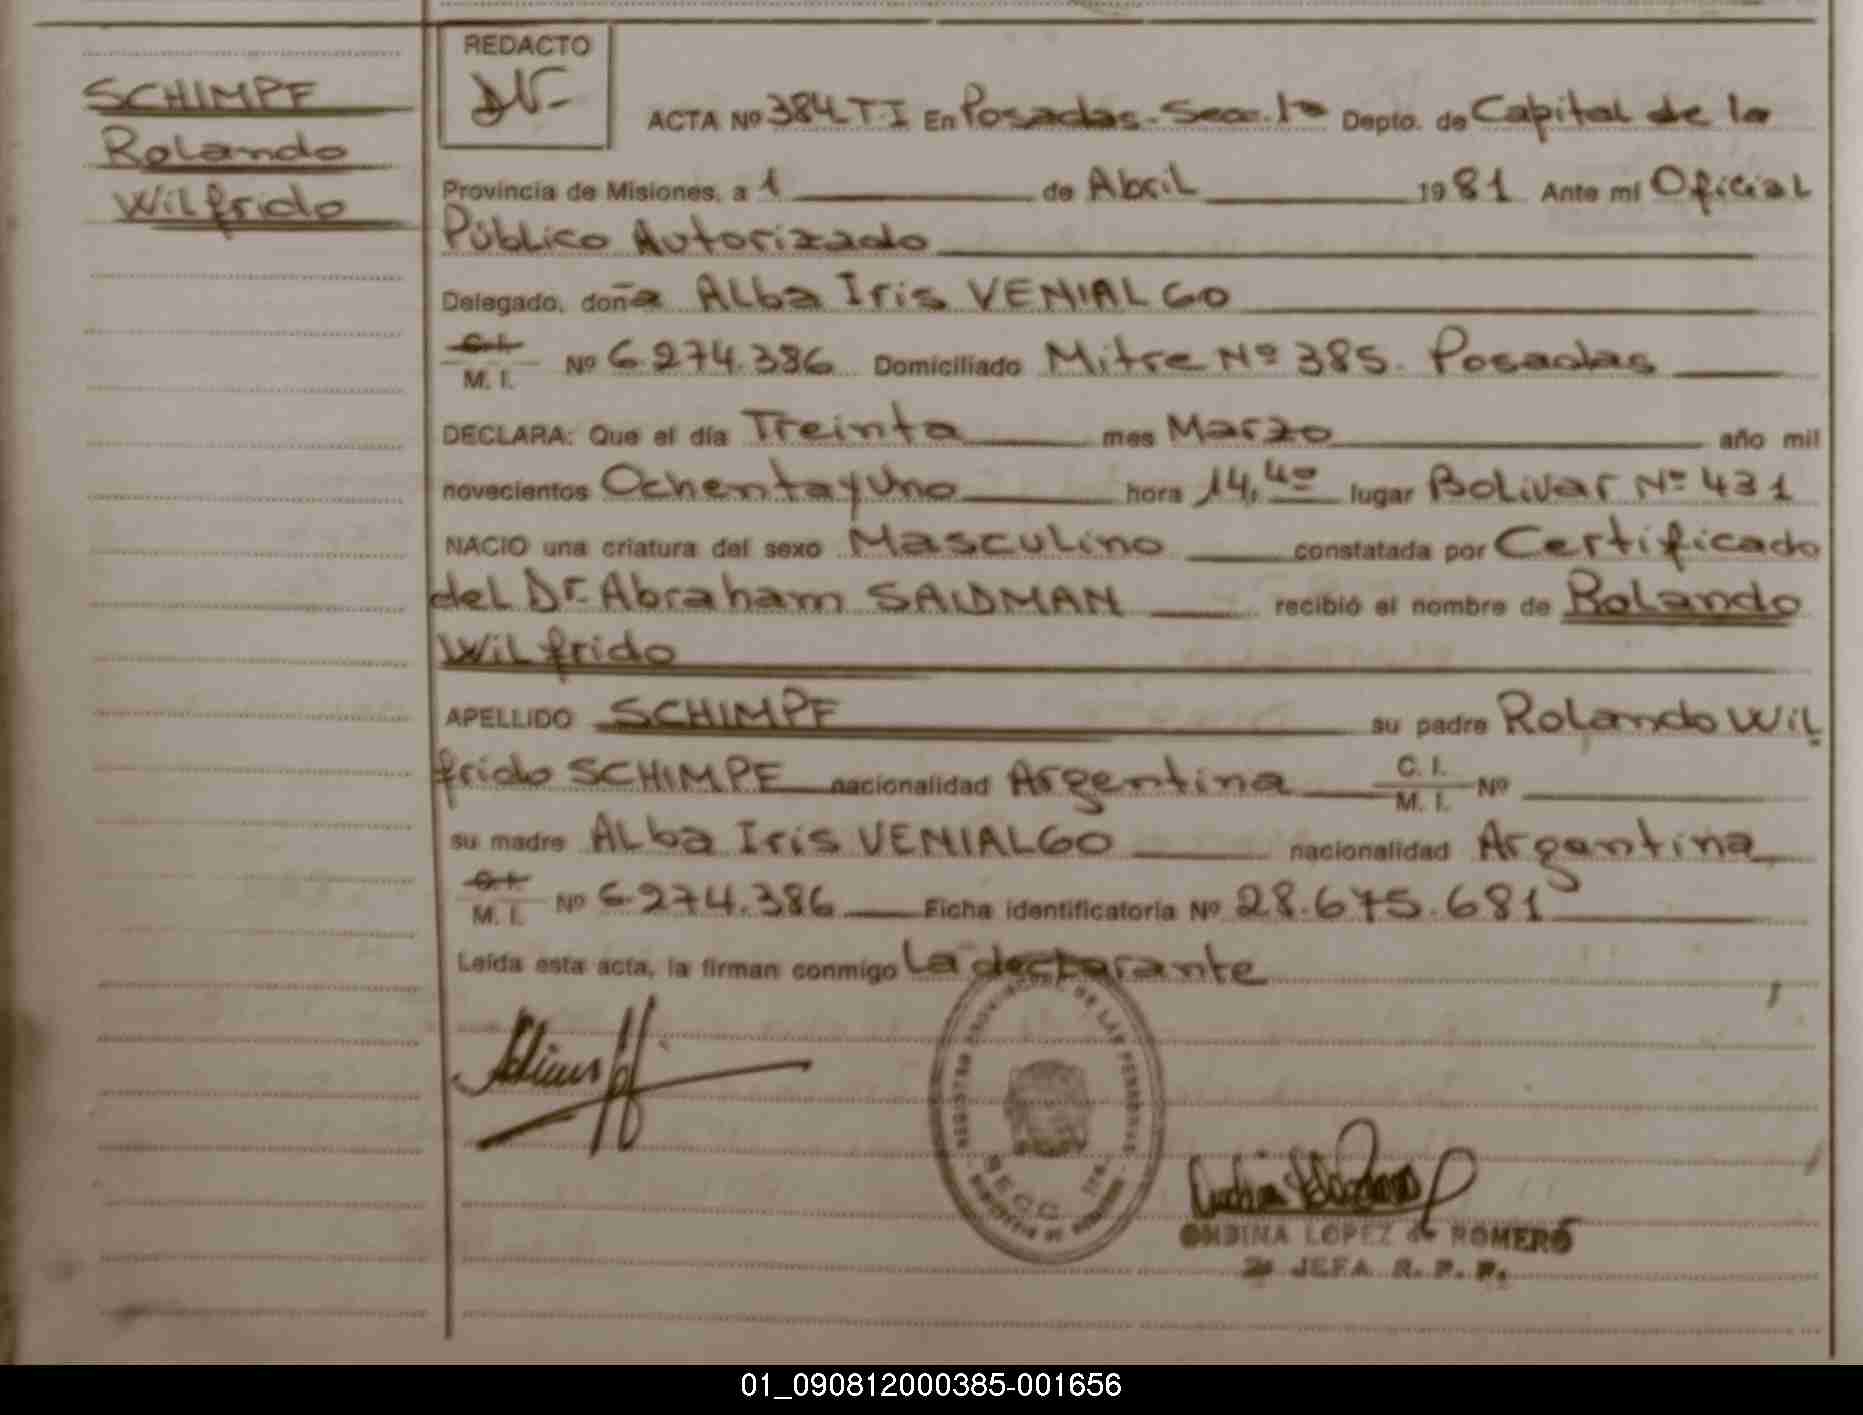 REDACTO
SCHIMPF
Rolando
Wilfrido
ACTA Nº 384 T.I En Posadas. Secc. 1ª Depto. de Capital de la
Provincia de Misiones, a 1 de Abril 1981 Ante mí Oficial
Público Autorizado
Delegado, doña Alba Iris VENIALGO
C. I.
M. I. Nº 6.274.386 Domiciliado Mitre Nº 385. Posadas
DECLARA: Que el día Treinta mes Marzo año mil
novecientos Ochenta y Uno hora 14,40 lugar Bolivar Nº 431
NACIO una criatura del sexo Masculino constatada por Certificado
del Dr. Abraham SAIDMAN recibió el nombre de Rolando
Wilfrido
APELLIDO SCHIMPF su padre Rolando Wil
frido SCHIMPF nacionalidad Argentina C. I.
M. I. Nº
su madre Alba Iris VENIALGO nacionalidad Argentina
C. I.
M. I. Nº 6.274.386 Ficha identificatoria Nº 28.675.681
Leída esta acta, la firman conmigo La declarante
REGISTRO PROVINCIAL DE LAS PERSONAS
SECC.
ONDINA LOPEZ de ROMERO
2ª JEFA R. P. P.
01_090812000385-001656